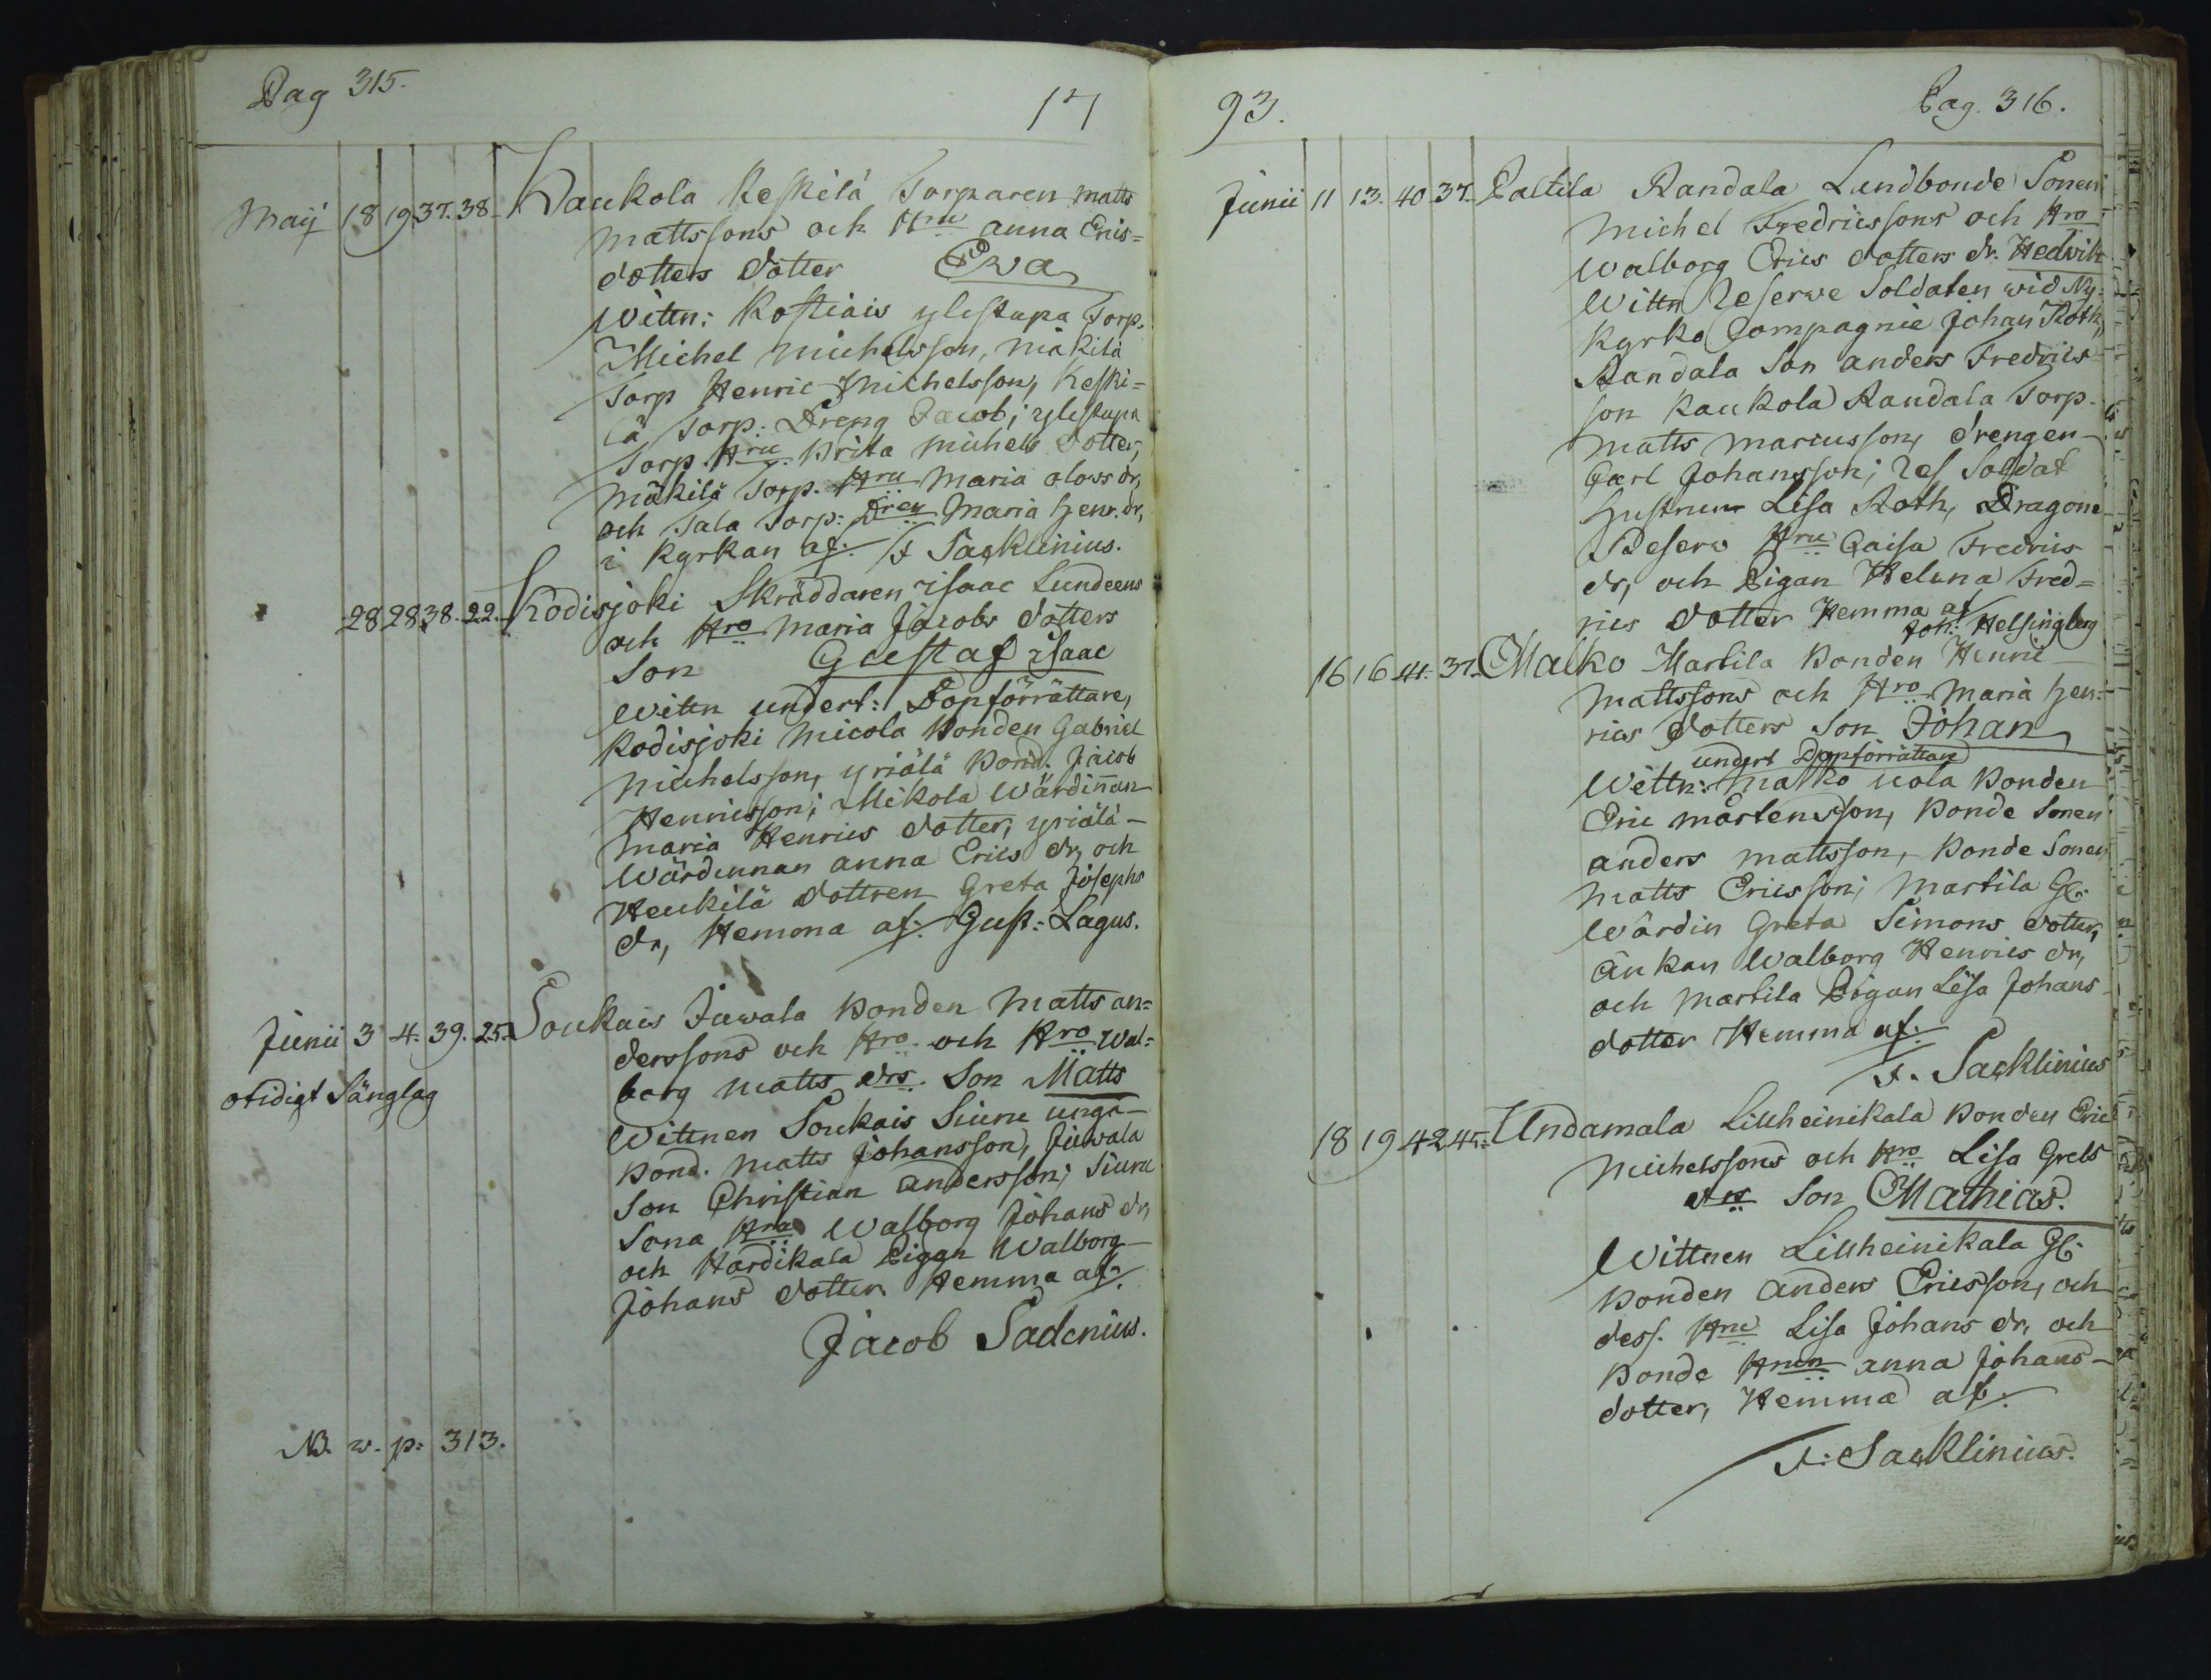 Pag 315.
17
Maij 18 19 37. 38. Kaukola Keskilä Torparen Matts
Mattssons och Hru Anna Erics=
dotters dotter Ewa
Wittn: Kostiais ylestupa Torp.
Michel Michelsson, Mäkilä
Torp Henric Michelsson, Keski=
lä Torp: Dreng Jacob; ylestupa
Torp. Hru Brita Michels dotter,
Mäkilä Torp. Hru Maria Olofs dr,
och Tala Torp: Maria Henr. dr,
i Kyrkan af. F Sacklinius.
28 28 38. 22. Kodisjoki Skräddaren Isaac Lundeens
och Hro Maria Jacobs dotters
Son Gustaf Isaac
Wittn undert: Dopförrättare,
Kodisjoki Micola Bonden Gabriel
Michelsson, yriälä Bond. Jacob
Henricsson; Mikola Wärdinnan
Maria Henrics dotter, yriälä
Wärdinnan Anna Erics dr, och
Heukilä dottren Greta Josephs
dr, Hemma af. Gust: Lagus.
Junii 3 4. 39. 25. Soukais Juwala Bonden Matts An=
derssons och Hro och Hro Wal=
borg Matts drs. Son Matts
otidigt Sänglag
Wittnen Soukais Siuru unga
Bond. Matts Johansson, Juwala
Son Christian Andersson; Siuru
Sona Hru Walborg Johans dr,
och Hardikala Pigan Walborg
Johans dotter Hemma af.
Jacob Sadenius.
NB. v. p: 313.
93.
Pag. 316.
Junii 11 13. 40. 37. Paltila Randala Lundbonde Sonen
Michel Fredricssons och Hro
Walborg Erics dotters dr. Hedvik
Wittn Reserve Soldaten wid Ny=
Kyrko Compagnie Johan Roth,
Randala Son Anders Fredrics
son Kaukola Randala Torp.
Matts Marcusson, Drengen
Carl Johansson; Res Soldat
Hustrun Lisa Roth, Dragone
Reserv Hru Caisa Fredrics
dr, och Pigan Helena Fred=
rics dotter Hemma af
Joh: Helsingberg
16 16 41. 37. Malko Martila Bonden Henric
Mattssons och Hro Maria Hen=
rics dotters Son Johan
undert Dopförrättare
Wittn: Malko uola Bonden
Eric Mårtensson, Bonde Sonen
Anders Mattsson, Bonde Sonen
Matts Ericsson; Martila Gl:
Wärdin Greta Simons dotter,
Änkan Walborg Henrics dr,
och Martila Pigan Lisa Johans
dotter Hemma af.
F. Sacklinius
18 19 42 45. Undamala Lillheinikala Bonden Eric
Michelssons och Hro Lisa Grels
drs Son Mathias.
Wittnen Lillheinikala Gl:
Bonden Anders Ericsson, och
dess. Hru Lisa Johans dr, och
Bonde Hrun Anna Johans
dotter, Hemma af.
F: Sacklinius.